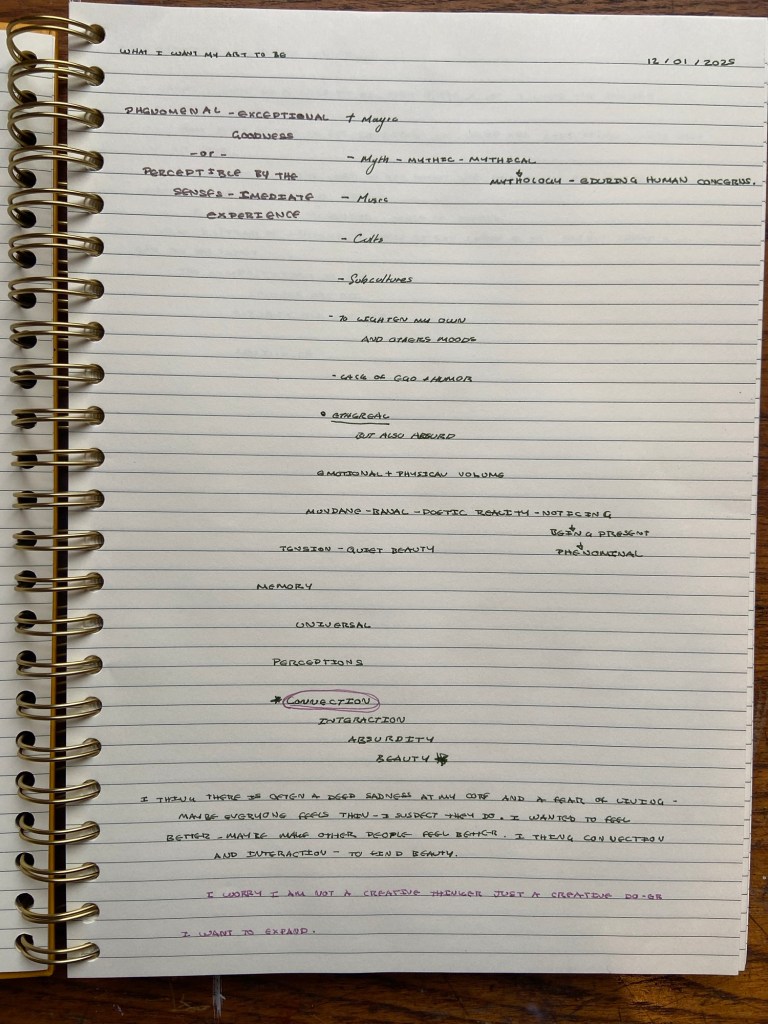 WHAT I WANT MY ART TO BE
12/01/2025
PHENOMENAL - EXCEPTIONAL + Magic
GOODNESS
- or - - Myth - MYTHIC - MYTHICAL
PERCEPTIBLE BY THE MYTHOLOGY - EDURING HUMAN CONCERNS.
SENSES - IMEDIATE - Music
EXPERIENCE
- Cults
- Subcultures
- TO LIGHTEN MY OWN
AND OTHERS MOODS
- LACK OF EGO + HUMOR
• ETHEREAL
BUT ALSO ABSURD
EMOTIONAL + PHYSICAL VOLUME
MUNDANE - BANAL - POETIC REALITY - NOTICING
BEING PRESENT
TENSION - QUIET BEAUTY PHENOMINAL
MEMORY
UNIVERSAL
PERCEPTIONS
* CONNECTION
INTERACTION
ABSURDITY
BEAUTY *
I THINK THERE IS OFTEN A DEEP SADNESS AT MY CORE AND A FEAR OF LIVING -
MAYBE EVERYONE FEELS THIS - I SUSPECT THEY DO. I WANTED TO FEEL
BETTER - MAYBE MAKE OTHER PEOPLE FEEL BETTER. I THINK CONNECTION
AND INTERACTION - TO FIND BEAUTY.
I WORRY I AM NOT A CREATIVE THINKER JUST A CREATIVE DO-ER
I WANT TO EXPAND.